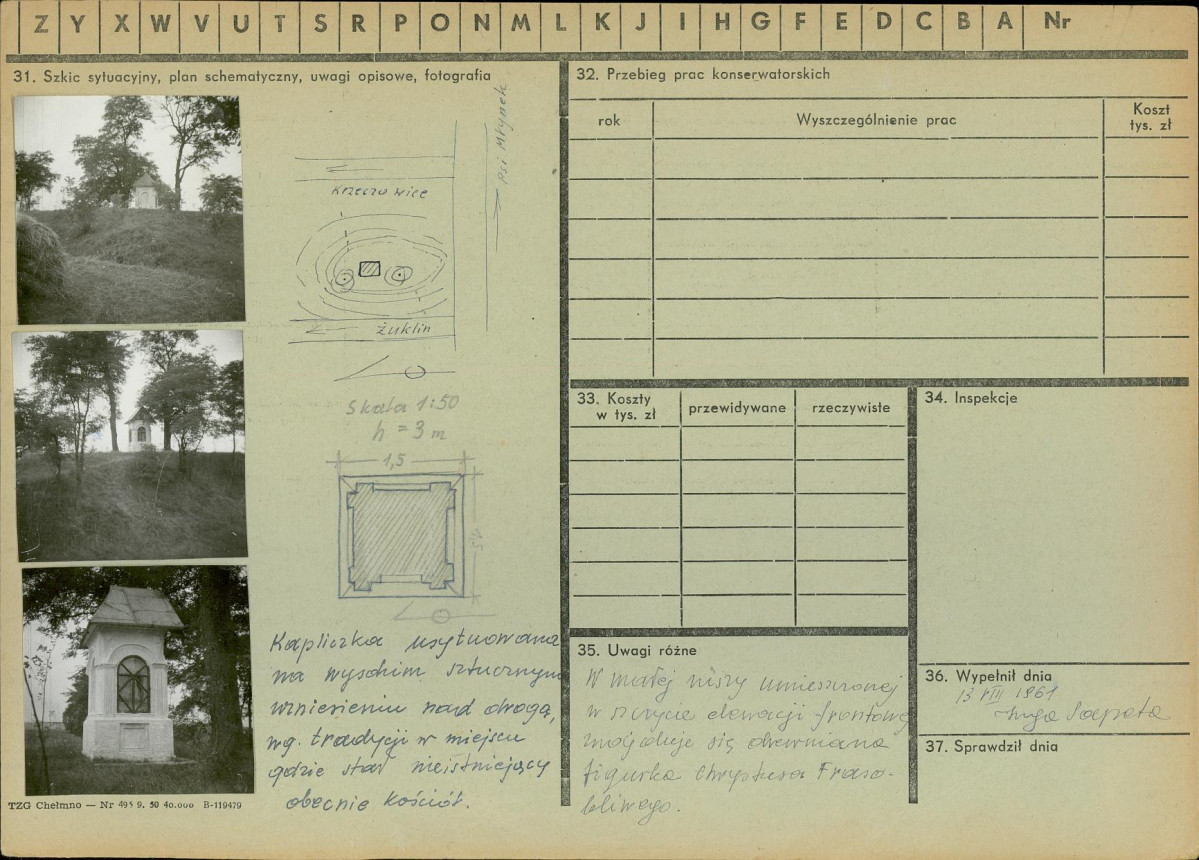 Z Y X W V U T S R P O N M L K J I H G F E D C B A Nr
31. Szkic sytuacyjny, plan schematyczny, uwagi opisowe, fotografia
Psi Młynek
Krzeczowice
Żuklin
Skala 1:50
h = 3 m
1,5
1,5
Kapliczka usytuowana
na wysokim sztucznym
wzniesieniu nad drogą,
wg. tradycji w miejscu
gdzie stał nieistniejący
obecnie kościół.
TZG Chełmno — Nr 495 9. 50 40.000 B-119479
32. Przebieg prac konserwatorskich
rok
Wyszczególnienie prac
Koszt
tys. zł
33. Koszty
w tys. zł
przewidywane
rzeczywiste
34. Inspekcje
35. Uwagi różne
W małej niszy umieszczonej
w szczycie elewacji frontowej
znajduje się drewniana
figurka Chrystusa Fraso-
bliwego.
36. Wypełnił dnia
13 VIII 1961
Sapeta
37. Sprawdził dnia